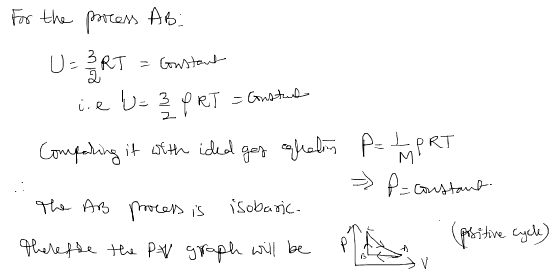 For the process AB:
U = 3/2 RT = Constant
i.e U = 3/2 ρRT = Constant
Comparing it with ideal gas equation P = 1/M ρRT
⇒ P = constant.
∴
The AB process is isobaric.
Therefore the P-V graph will be P V (positive cycle)